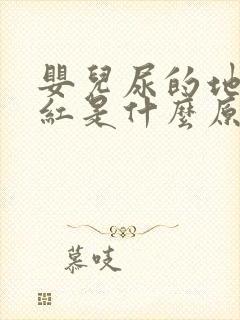 嬰兒尿的地
紅是什麼原
慕吱